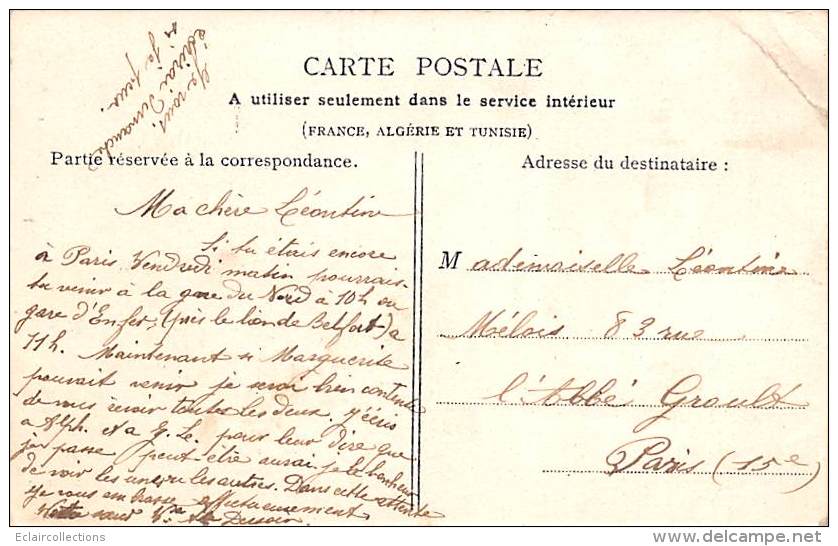 Je vous
écrirai Dimanche
si je peux.
CARTE POSTALE
A utiliser seulement dans le service intérieur
(FRANCE, ALGÉRIE ET TUNISIE)
Partie réservée à la correspondance.
Ma chère Léontine
Si tu étais encore
à Paris Vendredi matin pourrais-
tu venir à la gare du Nord à 10h ou
gare d'Enfer, (près le lion de Belfort) à
11h. Maintenant si Marguerite
pouvait venir je serai bien contente
de vous revoir toutes les deux. j'écris
a Alph. et a pour leur dire que
je passe peut-être aurai-je le bonheur
de voir les uns ou les autres. Dans cette attente
je vous embrasse affectueusement
Votre sœur
Adresse du destinataire :
Mademoiselle Léontine
Mélois 83 rue
l'Abbé Groult
Paris (15e)
Eclaircollections
www.delcampe.net